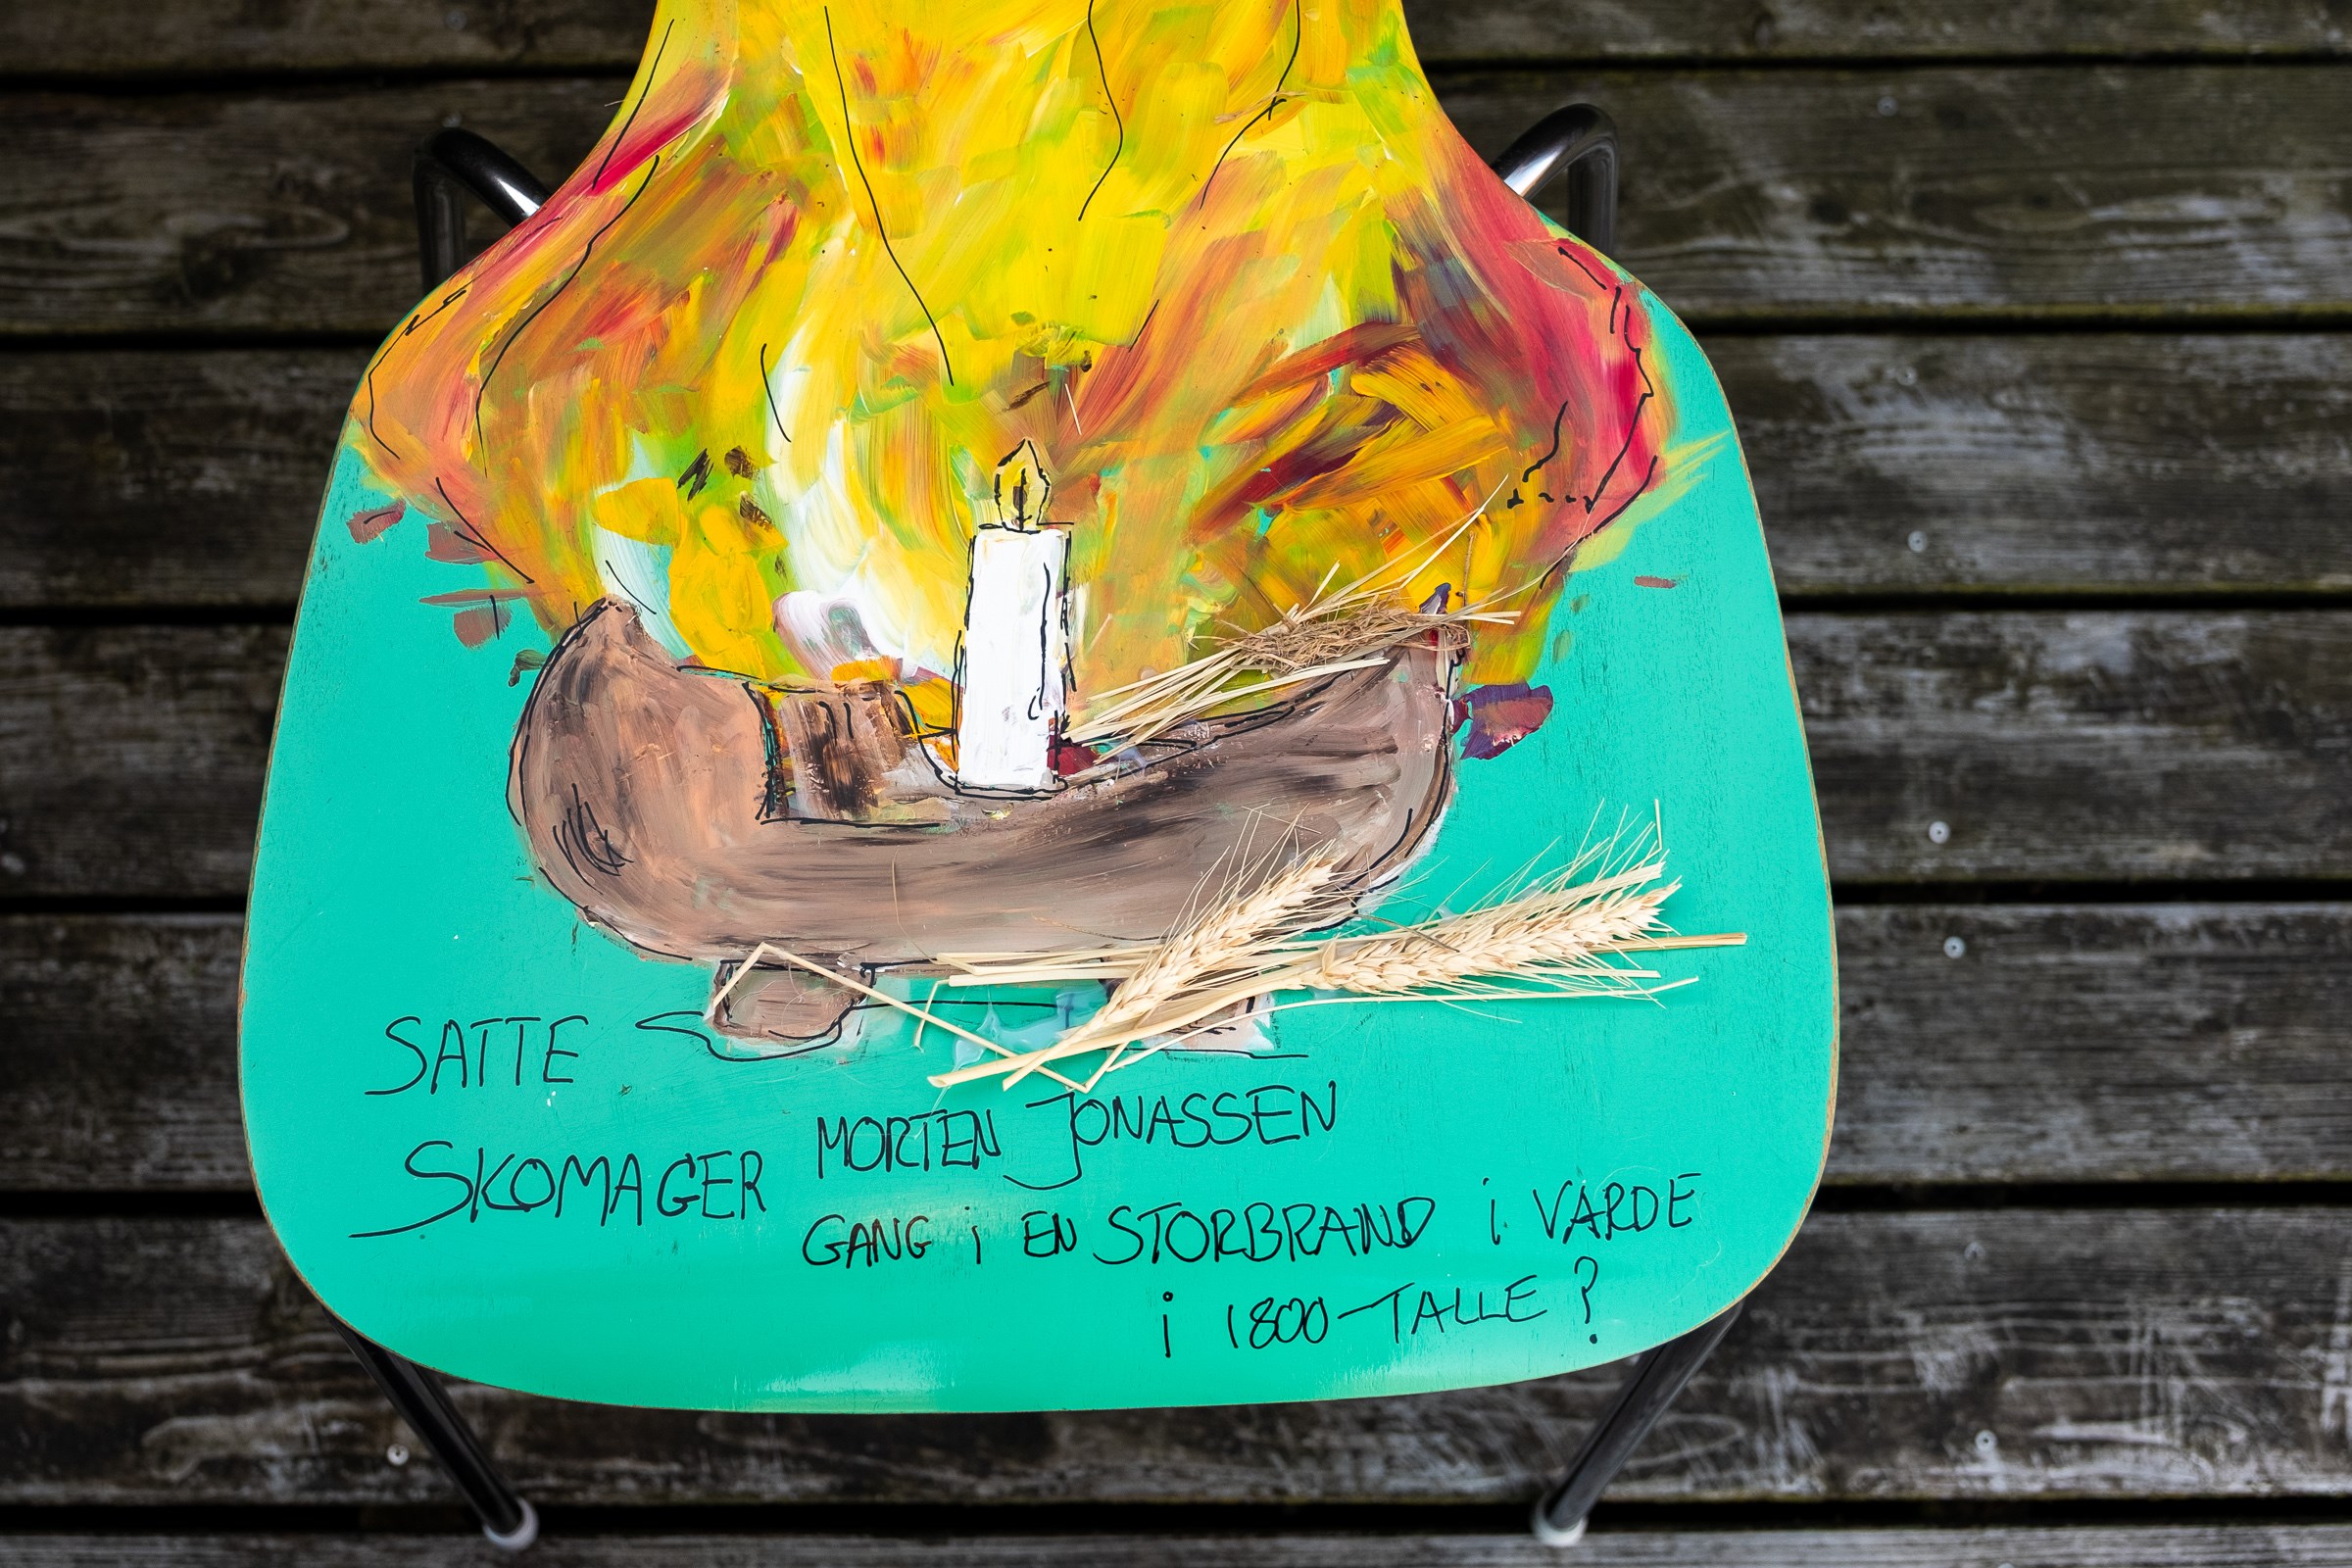 SATTE
SKOMAGER MORTEN JONASSEN
GANG i EN STORBRAND i VARDE
i 1800-TALLE?